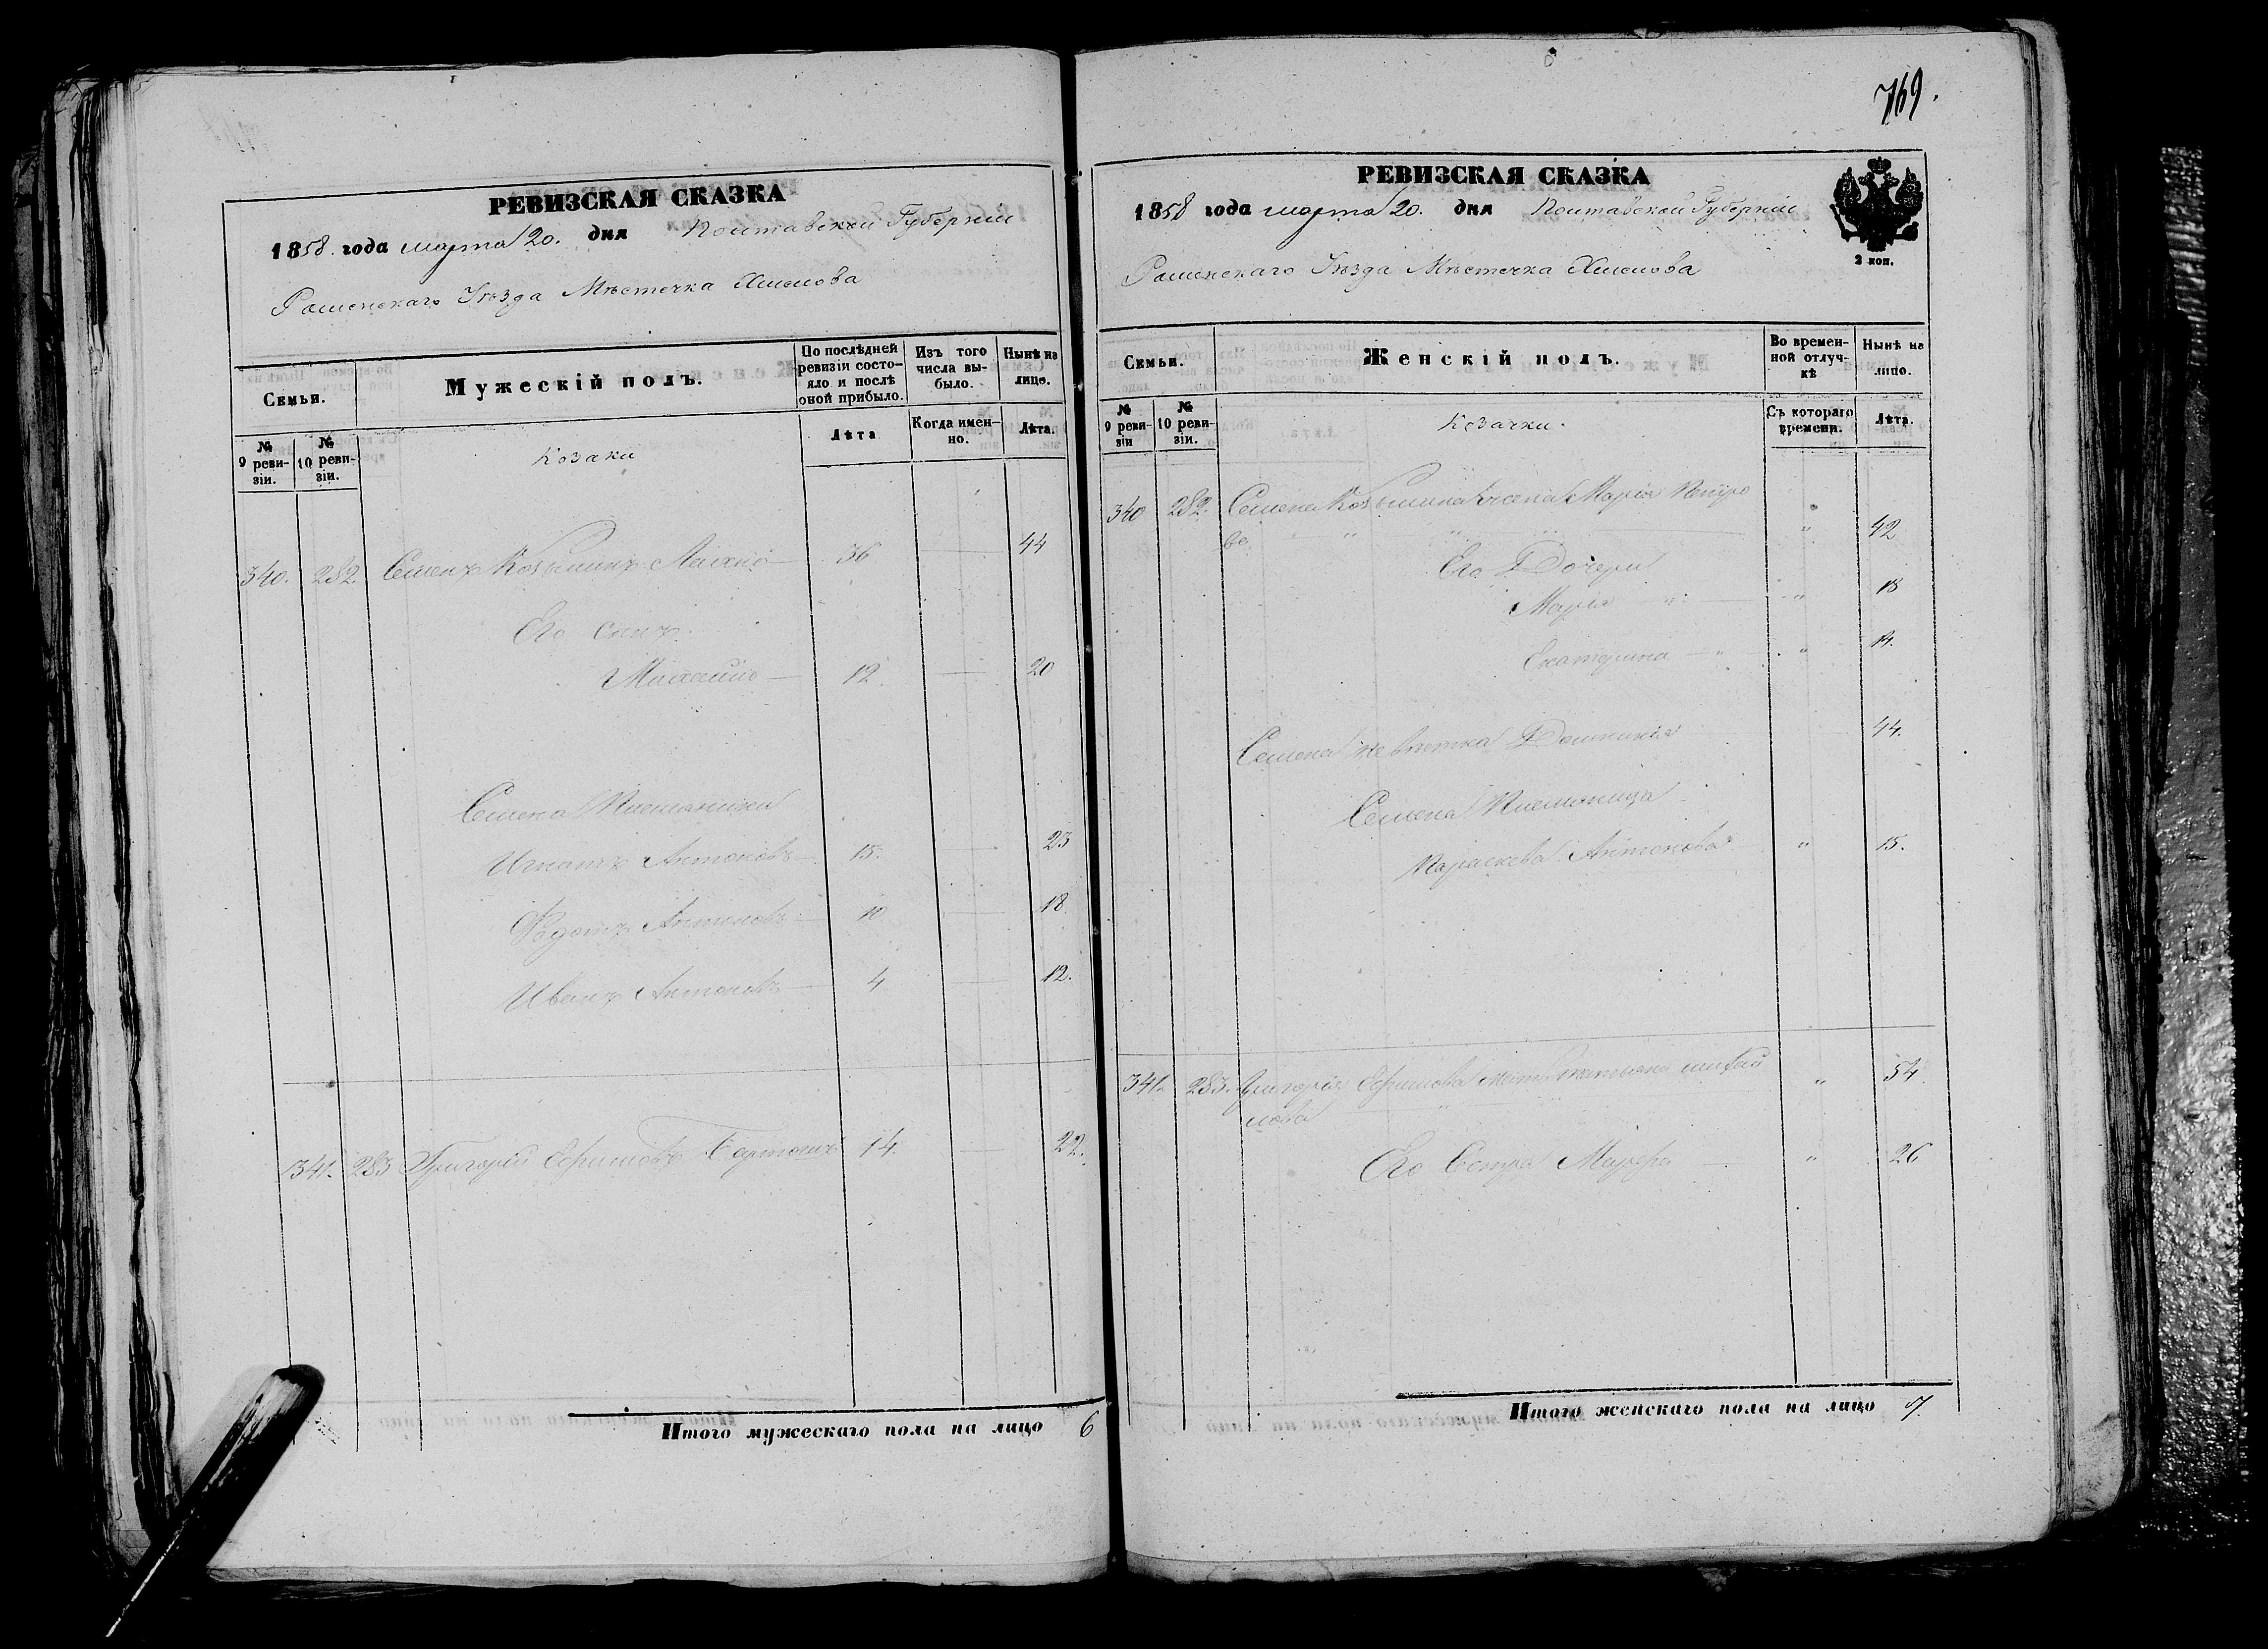 769.
РЕВИЗСКАЯ СКАЗКА
1858. года марта 20. дня Полтавской Губерніи
Роменскаго Уѣзда Мѣстечка Хмелова
Семьи.
Мужескій полъ.
По послѣдней ревизіи состояло и послѣ оной прибыло.
Изъ того числа выбыло.
Нынѣ на лицо.
№ 9 ревизіи.
№ 10 ревизіи.
Козаки
Лѣта
Когда именно.
Лѣта.
340. 282. Семенъ Козьминъ 36 — 44
Его сынъ
Михайло — 12 — 20
Семена Племянники
Игнатъ Антоновъ — 15. — 23
Федотъ Антоновъ — 10 — 18
Иванъ Антоновъ — 4 — 12.
341. 283 Григорій Ефимовъ 14. — 22.
Итого мужескаго пола на лицо 6
РЕВИЗСКАЯ СКАЗКА
1858 года марта 20. дня Полтавской Губерніи
Роменскаго Уѣзда Мѣстечка Хмелова
2 коп.
Семьи.
Женскій полъ.
Во временной отлучкѣ
Нынѣ на лицо.
№ 9 ревизіи
№ 10 ревизіи.
Козачки.
Съ котораго времени.
Лѣта.
340 282. Семена Козьмина жена Марія Петро
ва " " " " " 42
Его Дочери
Марія — " — " 18
Екатерина — " — " 14.
Семена невѣстка Домникія 44.
Семена Племяница
Параскева Антонова " 15.
341. 283. Григорія Ефимова мать Татьяна михай
лова " 54
Его Сестра Марфа — " 26
Итого женскаго пола на лицо 7.